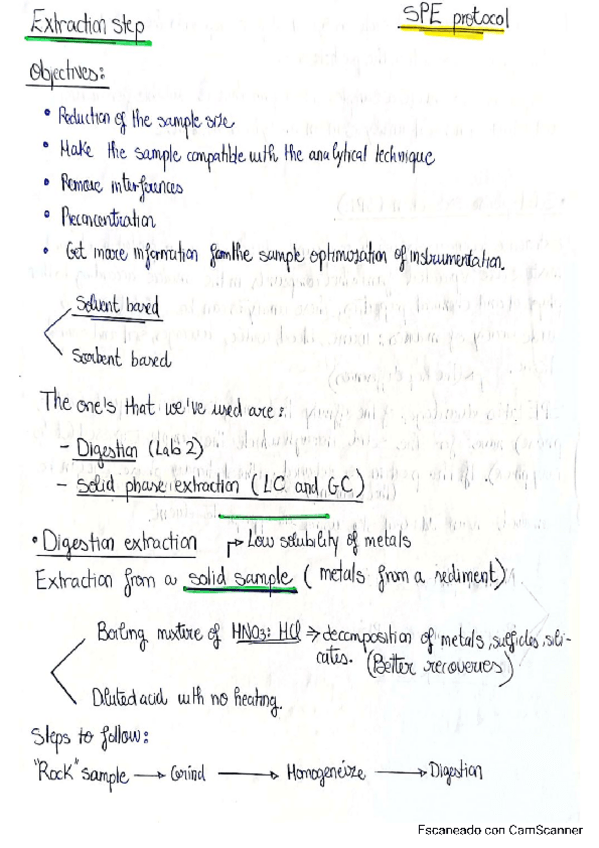 Extraction step
SPE protocol
Objectives:
• Reduction of the sample size
• Make the sample compatible with the analytical technique
• Remove interferences
• Preconcentration
• Get more information from the sample optimization of instrumentation.
Solvent based
Sorbent based
The one's that we've used are:
- Digestion (Lab 2)
- Solid phase extraction (LC and GC)
• Digestion extraction ↱ Low solubility of metals
Extraction from a solid sample (metals from a sediment)
Boiling mixture of HNO3:HCl ⇒ decomposition of metals, sulfides, sili-
cates. (Better recoveries)
Diluted acid with no heating.
Steps to follow:
"Rock" sample → Grind → Homogeneize → Digestion
Escaneado con CamScanner